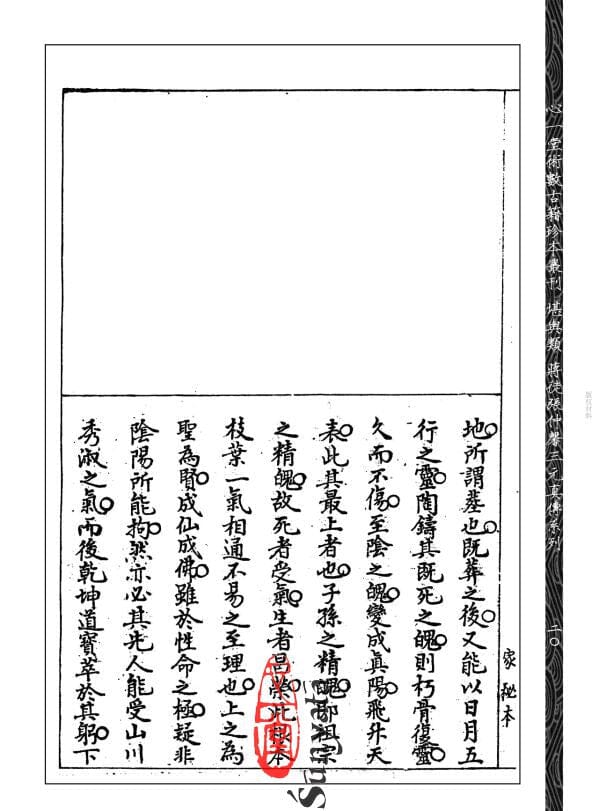 心一堂術數古籍珍本叢刊 堪輿類 蔣徒張仲馨三元真傳系列
二〇
家秘本
地所謂墓也既葬之後又能以日月五
行之靈陶鑄其既死之魄則朽骨復靈
久而不傷至陰之魄變成真陽飛升天
表此其最上者也子孫之精魄即祖宗
之精魄故死者受氣生者昌榮此根本
枝葉一氣相通不易之至理也上之為
聖為賢成仙成佛雖於性命之極疑非
陰陽所能拘然亦必其先人能受山川
秀淑之氣而後乾坤道寶萃於其躬下
心一堂
Śunyata
版权材料